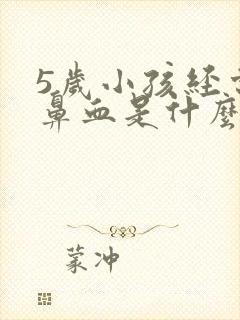 5歲小孩經
鼻血是什麼
蒙冲